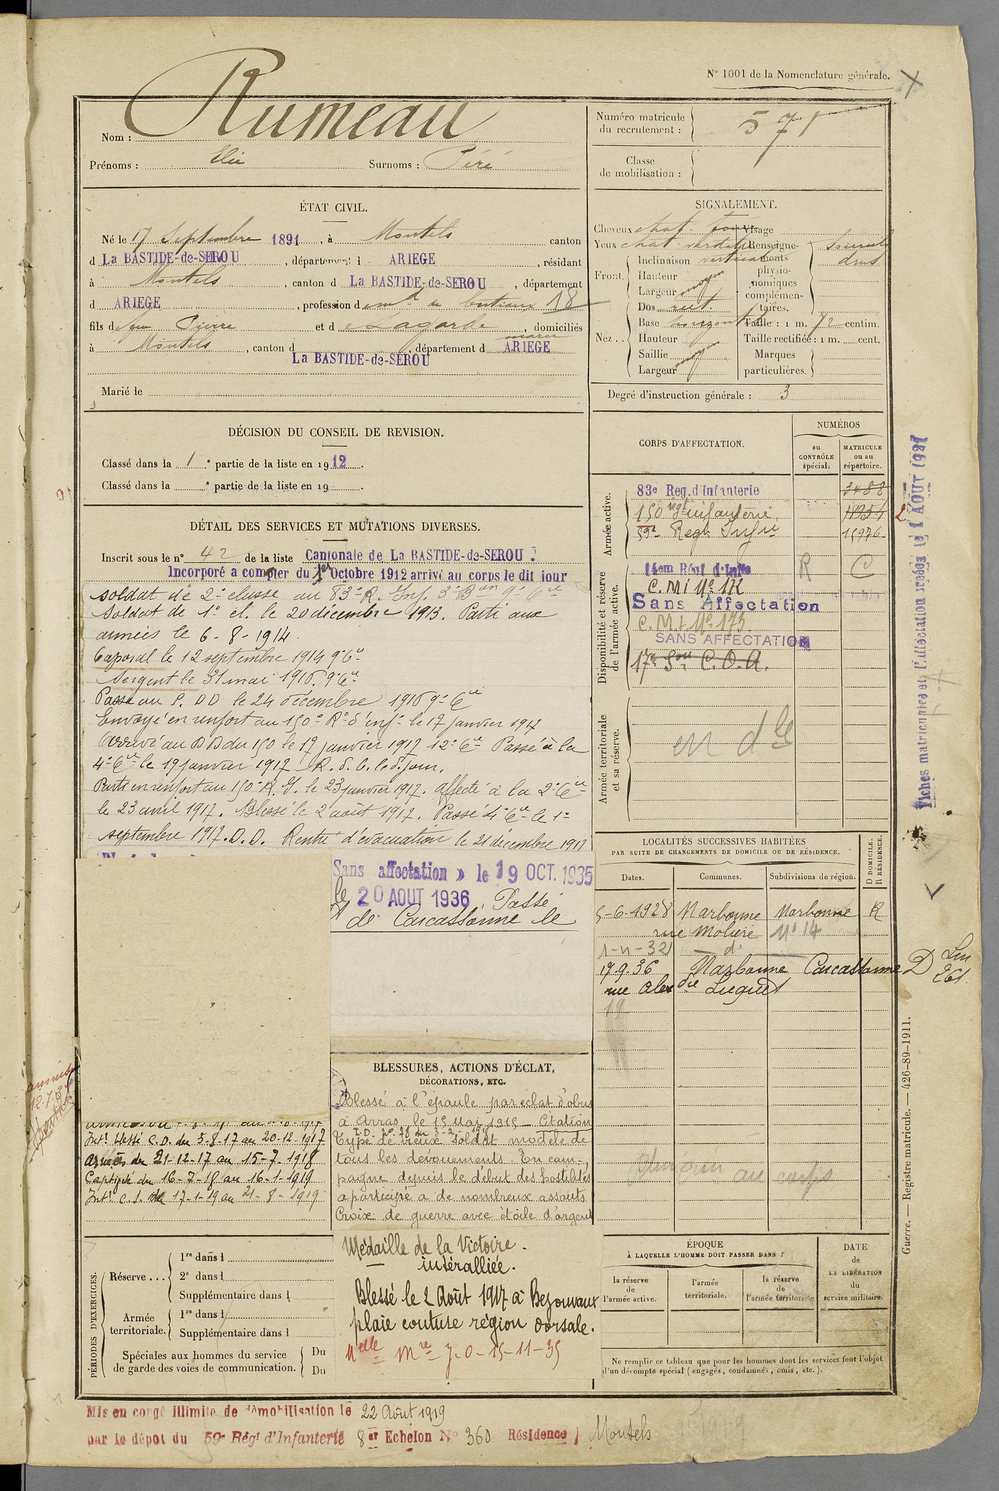 N° 1001 de la Nomenclature générale.
Nom : Rumeau
Prénoms : Elie Surnoms : Péré
Numéro matricule du recrutement : 571
Classe de mobilisation :
ÉTAT CIVIL.
Né le 17 Septembre 1891, à Montels canton
d La BASTIDE-de-SEROU, département d ARIEGE, résidant
à Montels, canton d La BASTIDE-de-SEROU, département
d ARIEGE, profession d 18
fils de feu Pierre et de Lagarde, domiciliés
à Montels, canton d La BASTIDE-de-SEROU, département d ARIEGE
Marié le
SIGNALEMENT.
Cheveux chat. Visage
Yeux chat verdâtre Renseignements physionomiques complémentaires.
Front. Inclinaison verticale
Hauteur moy
Largeur moy
Nez. Dos rect.
Base horizontale Taille : 1 m. 72 centim.
Hauteur Taille rectifiée : 1 m. cent.
Saillie moy Marques particulières.
Largeur
Degré d'instruction générale : 3
DÉCISION DU CONSEIL DE REVISION.
Classé dans la 1e partie de la liste en 1912.
Classé dans la e partie de la liste en 19
DÉTAIL DES SERVICES ET MUTATIONS DIVERSES.
Inscrit sous le n° 42 de la liste Cantonale de La BASTIDE-de-SEROU.
Incorporé a compter du 1er Octobre 1912 arrivé au corps le dit jour
soldat de 2e classe au 83e R. Inf.
Soldat de 1e cl. le 20 décembre 1913. Parti aux
armées le 6-8-1914.
Caporal le 12 septembre 1914 9e Cie
Sergent le 31 mai 1916. 9e Cie
Passé au P. DD le 24 décembre 1916 9e Cie
Envoyé en renfort au 150e R. d'Inf. le 17 janvier 1917
Arrivé au DD du 150 le 19 janvier 1917 12e Cie Passé à la
4e Cie le 19 janvier 1917
Parti en renfort au 150 R.I. le 23 janvier 1917. affecté à la 2e Cie
le 23 avril 1917. Blessé le 2 août 1917. Passé 4e Cie le 1e
septembre 1917. D.D. Rentré d'évacuation le 21 décembre 1917
Sans affectation » le 19 OCT. 1935
le 20 AOUT 1936 Passé
de Carcassonne le
Intr Hosp C.D. du 3-8-17 au 20-12-1917
Armées du 21-12-17 au 15-7-1918
Captivité du 16-7-18 au 16-1-1919
Intr C.S. du 17-1-19 au 21-8-1919
CORPS D'AFFECTATION.
NUMÉROS
au CONTRÔLE spécial.
MATRICULE ou au répertoire.
Armée active.
83e Reg. d'Infanterie 3488
150 regt infanterie 14251
59e Regt Infrie 15976
Disponibilité et réserve de l'armée active.
14em Rég d'Infie R C
C.M.I N° 1K
Sans Affectation
C.M.I N° 173
SANS AFFECTATION
17e Son C.O.A.
Armée territoriale et sa réserve.
en dté
LOCALITÉS SUCCESSIVES HABITÉES
PAR SUITE DE CHANGEMENTS DE DOMICILE OU DE RÉSIDENCE.
Dates. Communes. Subdivisions de région. D DOMICILE. R RÉSIDENCE.
5-6-1928 Narbonne Narbonne R
rue Molière N° 14
1-11-32 — d° —
17.9.36 Narbonne Carcassonne D
rue Alexdre Luguet
19
BLESSURES, ACTIONS D'ÉCLAT,
DÉCORATIONS, ETC.
Blessé à l'épaule par éclat d'obus
à Arras le 15 Mai 1915 — Citation
Type de vieux soldat modèle de
tous les dévouements. En cam-
pagne depuis le début des hostilités
a participé à de nombreux assauts
Croix de guerre avec étoile d'argent
Médaille de la Victoire
interalliée.
Blessé le 2 Août 1917 à Bezonvaux
plaie couture région dorsale.
PÉRIODES D'EXERCICES.
Réserve... 1re dans l
2e dans l
Supplémentaire dans l
Armée territoriale. 1re dans l
Supplémentaire dans l
Spéciales aux hommes du service de garde des voies de communication. Du
Du
ÉPOQUE
À LAQUELLE L'HOMME DOIT PASSER DANS :
la réserve de l'armée active.
l'armée territoriale.
la réserve de l'armée territoriale
DATE de LA LIBÉRATION du service militaire.
Ne remplir ce tableau que pour les hommes dont les services font l'objet
d'un décompte spécial (engagés, condamnés, omis, etc.).
Mis en congé illimité de démobilisation le 22 Août 1919
par le dépôt du 59e Régt d'Infanterie 8er Echelon N° 360 Résidence Montels
Fiches matriculaire et d'affectation créées le 1 AOUT 1927
Guerre. — Registre matricule. — 426-89-1911.